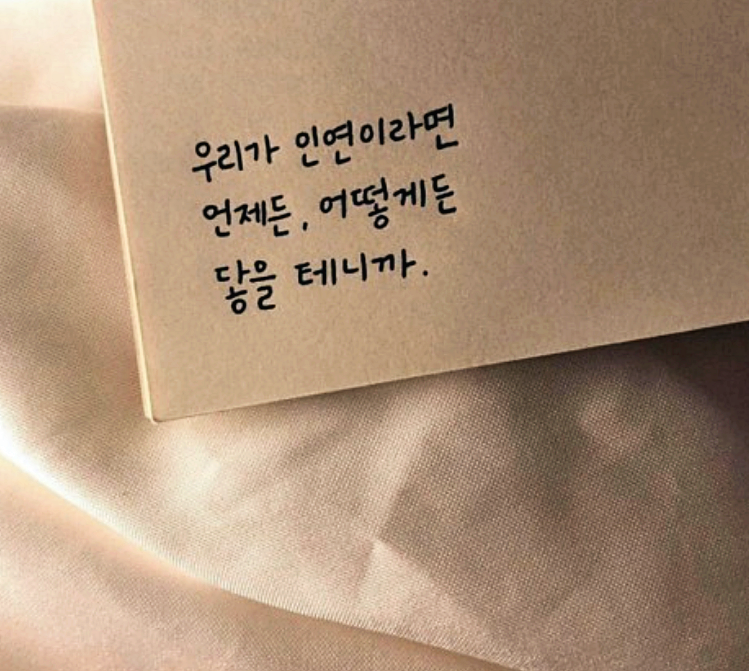 우리가 인연이라면
언제든, 어떻게든
닿을 테니까.